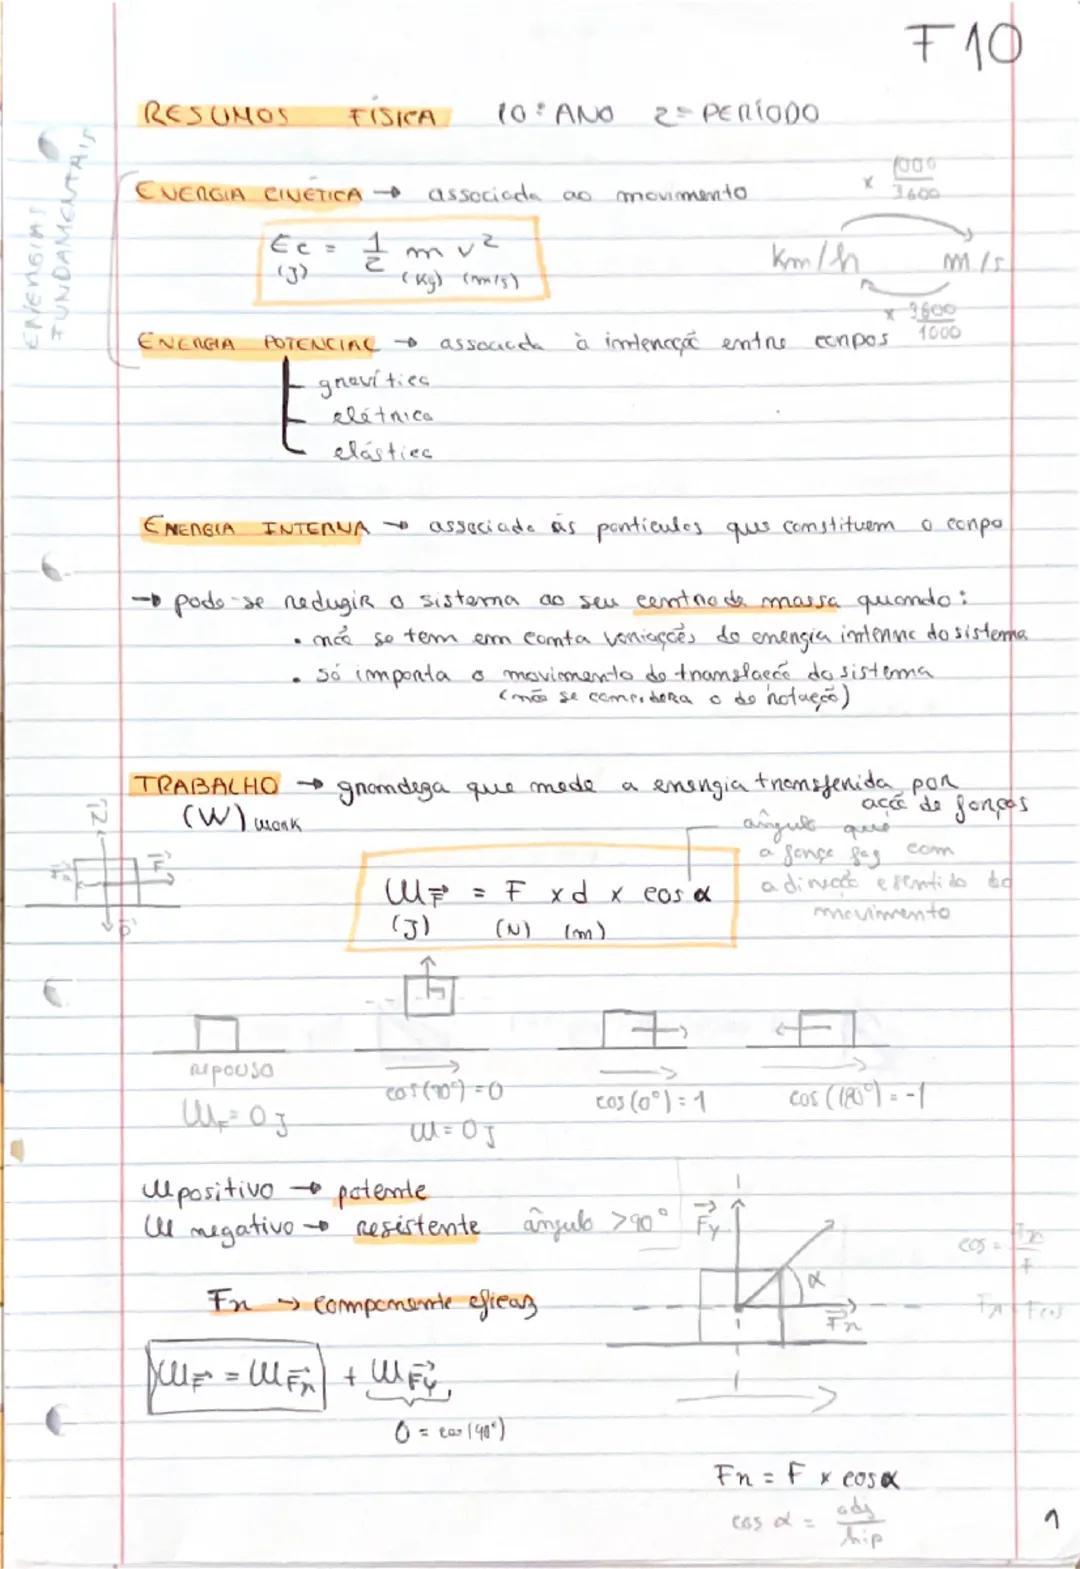 F10
RESUMOS FÍSICA 10º ANO 2º PERÍODO
ENERGIAS FUNDAMENTAIS
ENERGIA CINÉTICA → associada ao movimento
x 1000/3600
Ec = 1/2 m v²
(J) (Kg) (m/s)
km/h m/s
x 3600/1000
ENERGIA POTENCIAL → associada à interação entre corpos
gravítica
elétrica
elástica
ENERGIA INTERNA → associada às partículas que constituem o corpo
→ pode-se reduzir o sistema ao seu centro de massa quando:
• não se tem em conta variações de energia interna do sistema
• só importa o movimento de translação do sistema
(não se considera o de rotação)
TRABALHO → grandeza que mede a energia transferida por
ação de forças
(W) work
ângulo que
a força faz com
a direção e sentido do
movimento
N⃗
F⃗
P⃗
W F⃗ = F x d x cos α
(J) (N) (m)
repouso
W F = 0 J
cos(90°) = 0
W = 0 J
cos(0°) = 1
cos(180°) = -1
W positivo → potente
W negativo → resistente ângulo >90°
F⃗y
α
F⃗x
cos = Fx/F
Fx = F cos
Fx → componente eficaz
W F⃗ = W F⃗x + W F⃗y
0 = cos(90°)
Fx = F x cos α
cos α = adj/hip
1